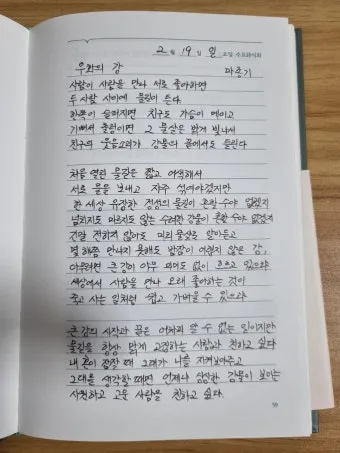 2 월 19 일 일 요일
우화의 강 마종기
사람이 사람을 만나 서로 좋아하면
두 사람 사이에 물길이 튼다.
한쪽이 슬퍼지면 친구도 가슴이 메이고
기뻐서 출렁이면 그 물살은 밝게 빛나서
친구의 웃음소리가 강물의 끝에서도 들린다
처음 열린 물길은 짧고 어색해서
서로 물을 보내고 자주 섞여야겠지만
한 세상 유장한 정성의 물길이 흔할 수야 없겠지
넘치지도 마르지도 않는 수려한 강물이 흔할 수야 없겠지
긴말 전하지 않아도 미리 물살로 알아듣고
몇 해쯤 만나지 못해도 밤잠이 어렵지 않은 강,
아무려면 큰 강이 아무 의미도 없이 흐르고 있으랴
세상에서 사람을 만나 오래 좋아하는 것이
죽고 사는 일처럼 쉽고 가벼울 수 있으랴
큰 강의 시작과 끝은 어차피 알 수 없는 일이지만
물길을 항상 맑게 고집하는 사람과 친하고 싶다
내 혼이 잠잘 때 그대가 나를 지켜보아주고
그대를 생각할 때면 언제나 싱싱한 강물이 보이는
시원하고 고운 사람을 친하고 싶다.
99